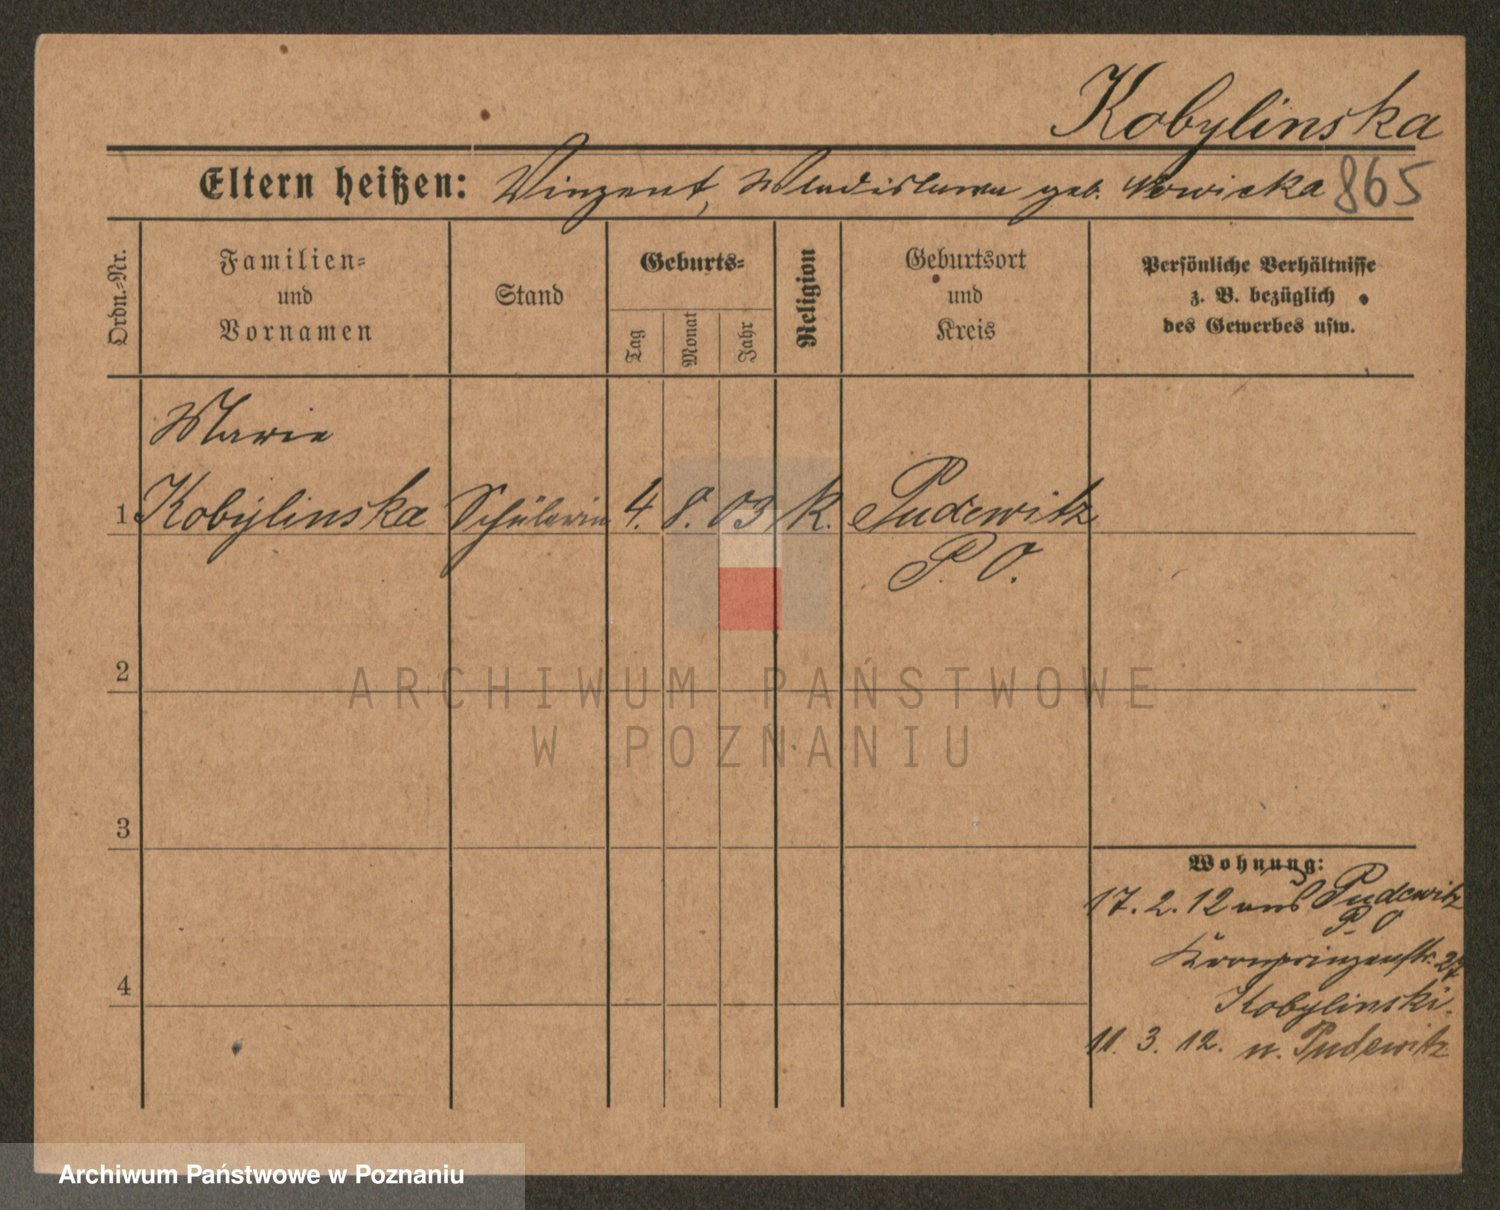 Kobylinska
Eltern heißen: Vinzent, Wladislawa geb. Nowicka 865
Ordn.-Nr.
Familien-
und
Vornamen
Stand
Geburts-
Tag
Monat
Jahr
Religion
Geburtsort
und
Kreis
Persönliche Verhältnisse
z. B. bezüglich
des Gewerbes usw.
Marie
1 Kobylinska Schülerin 4. 8. 03 k. Pudewitz
P. O.
2
3
4
Wohnung:
17. 2. 12 aus Pudewitz
P. O
Kronprinzenstr. 27
Kobylinski.
11. 3. 12. n. Pudewitz
ARCHIWUM PAŃSTWOWE
W POZNANIU
Archiwum Państwowe w Poznaniu